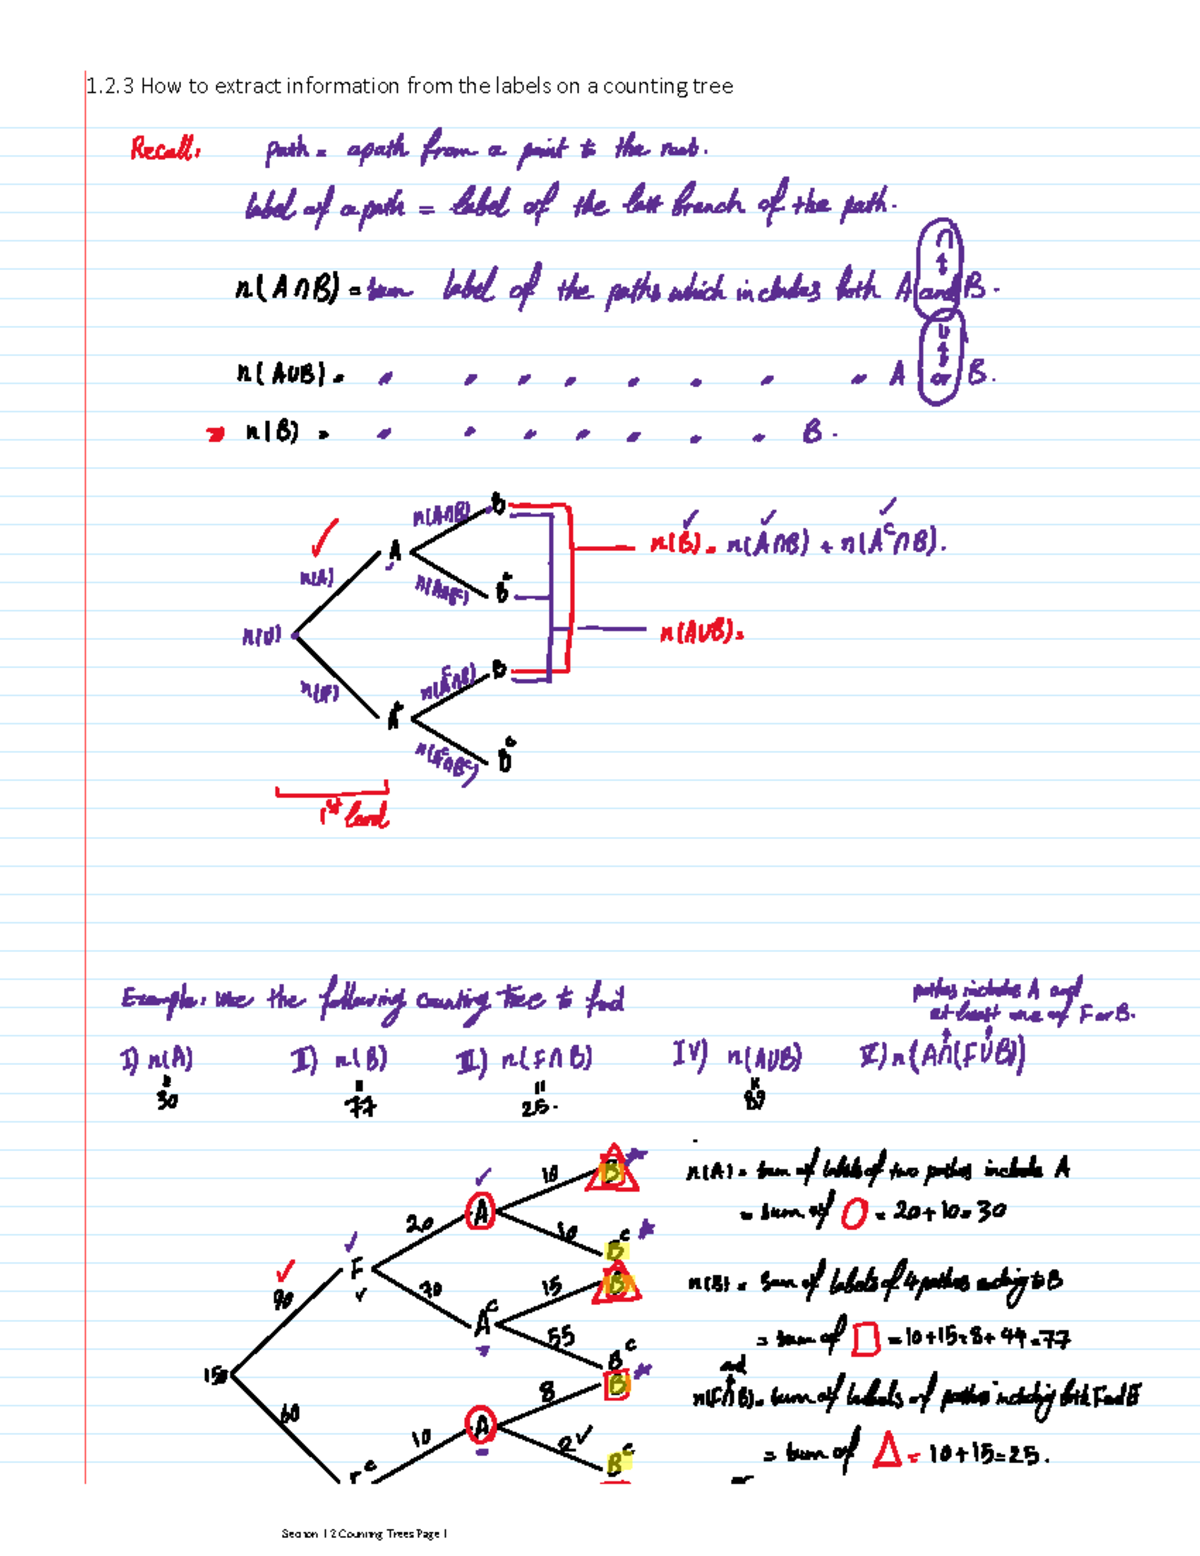 1.2.3 How to extract information from the labels on a counting tree
Recall: path = a path from a point to the root.
label of a path = label of the last branch of the path.
n(A∩B) = sum label of the paths which includes both A and B.
∩
↕
n(A∪B) = " " " " " " " " A or B.
∪
↕
n(B) = " " " " " " " B.
n(A∩B) B
n(A) A n(B) = n(A∩B) + n(A^c∩B).
n(A∩B^c) B^c
n(U) n(A∪B) =
n(A^c∩B) B
A^c
n(A^c∩B^c) B^c
1st level
Example: Use the following counting tree to find
paths includes A and
at least one of F or B.
I) n(A) II) n(B) III) n(F∩B) IV) n(A∪B) V) n(A∩(F∪B))
30 77 25.
10 B
n(A) = sum of labels of two paths include A
20 A
= sum of = 20+10=30
10 B^c
90 F
15 B
n(B) = sum of labels of 4 paths ending to B
70 A^c
= sum of = 10+15+8+44=77
55 B^c
150
8 B
and
n(F∩B) = sum of labels of paths including both F and B
60
10 A
2 B^c
= sum of Δ = 10+15=25.
Section 1 2 Counting Trees Page 1